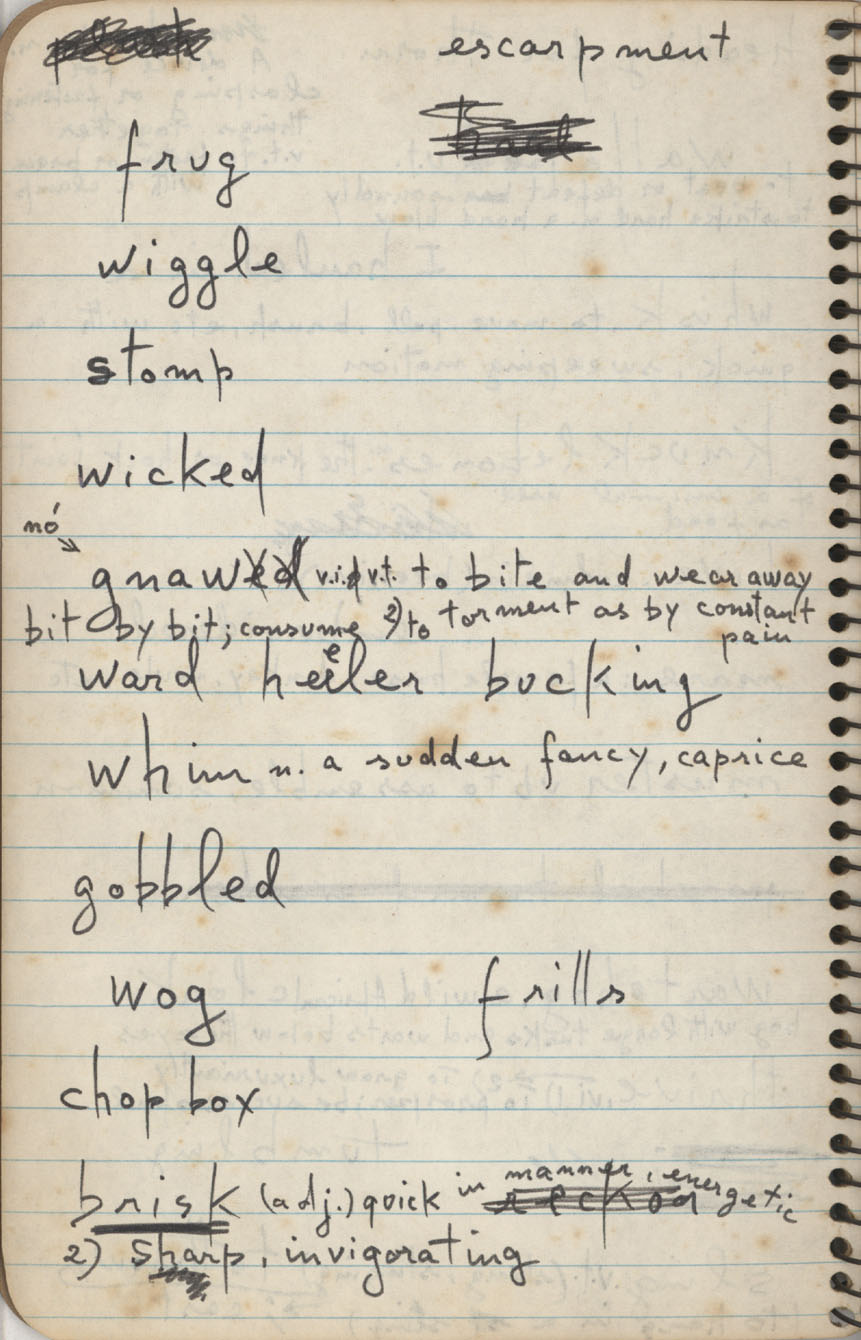 escarpment
frug
wiggle
stomp
wicked
nó
gnawed v.i.&v.t. to bite and wear away
bit by bit; consume 2) to torment as by constant
pain
ward heeler bucking
whim n. a sudden fancy, caprice
gobbled
wog frills
chop box
brisk (adj.) quick in manner, energetic
reckon
2) sharp, invigorating